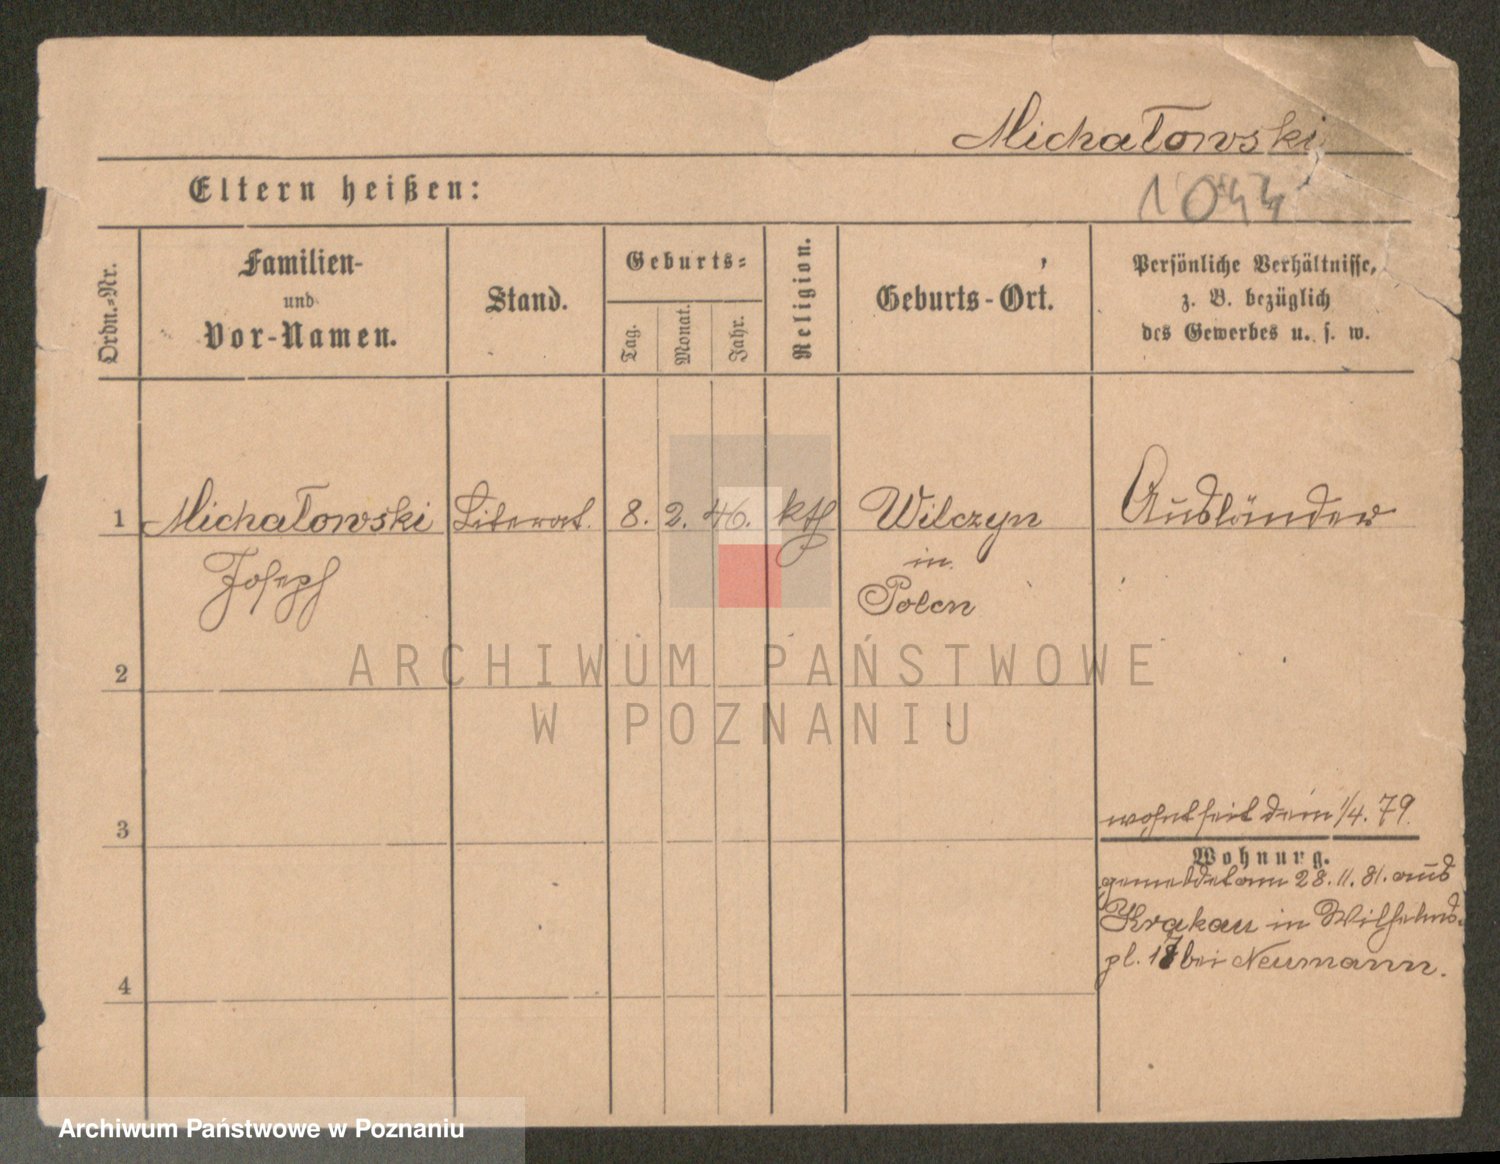 Michałowski
Eltern heißen:
1044
Ordn.-Nr.
Familien-
und
Vor-Namen.
Stand.
Geburts-
Tag.
Monat.
Jahr.
Religion.
Geburts-Ort.
Persönliche Verhältnisse,
z. B. bezüglich
des Gewerbes u. s. w.
1 Michałowski Literat. 8. 2. 46. kth Wilczyn Ausländer
Joseph
in
Polen
2
ARCHIWUM PAŃSTWOWE
W POZNANIU
wohnt seit dem 1/4. 79.
3
Wohnung.
gemeldet am 28.11.81. aus
Krakau in Wilhelms-
pl. 17 bei Neumann.
4
Archiwum Państwowe w Poznaniu